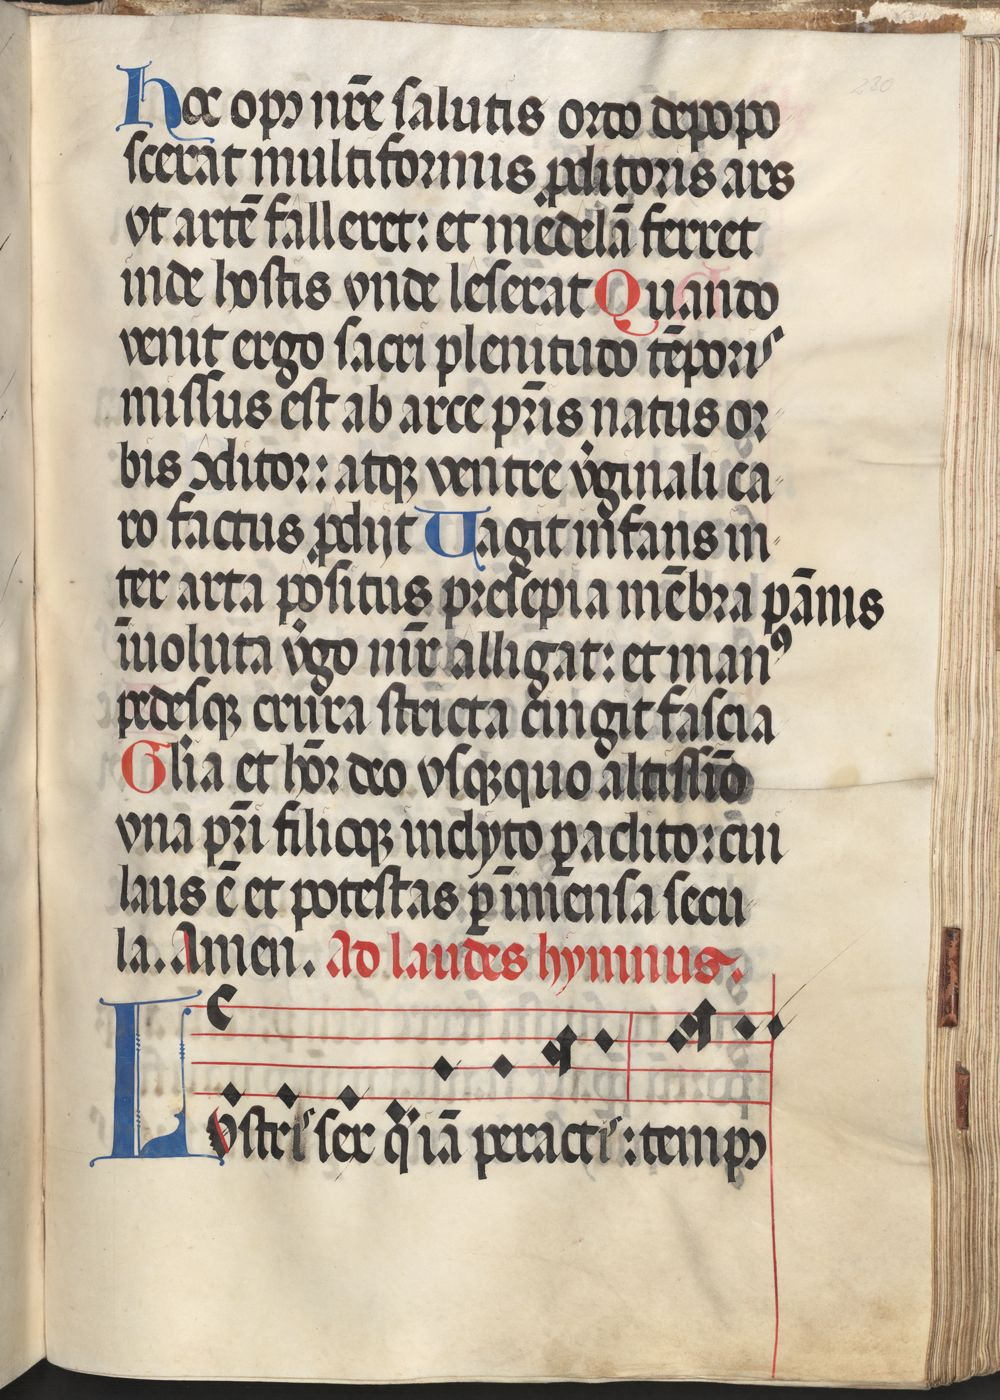 Hoc opꝰ nr̄e salutis ordo depopo
scerat multiformis ꝓditoris ars
vt artē falleret: et medelā ferret
inde hostis vnde leserat Quando
venit ergo sacri plenitudo tēporis
missus est ab arce pr̄is natus or
bis ↄditor: atqꝫ ventre v̓ginali ca
ro factus ꝓdijt Uagit infans in
ter arta positus presepia mēbra pānis
īuoluta v̓go mr̄ alligat: et manꝰ
pedesqꝫ crura stricta cingit fascia
Glīa et hōr deo vsqꝫquo altissīo
vna pr̄i filioqꝫ inclyto paraclito: cui
laus ē et potestas ꝑ īmensa secu
la. Amen. Ad laudes hymnus.
Lvstris sex q̓ iā peractis: tempꝰ